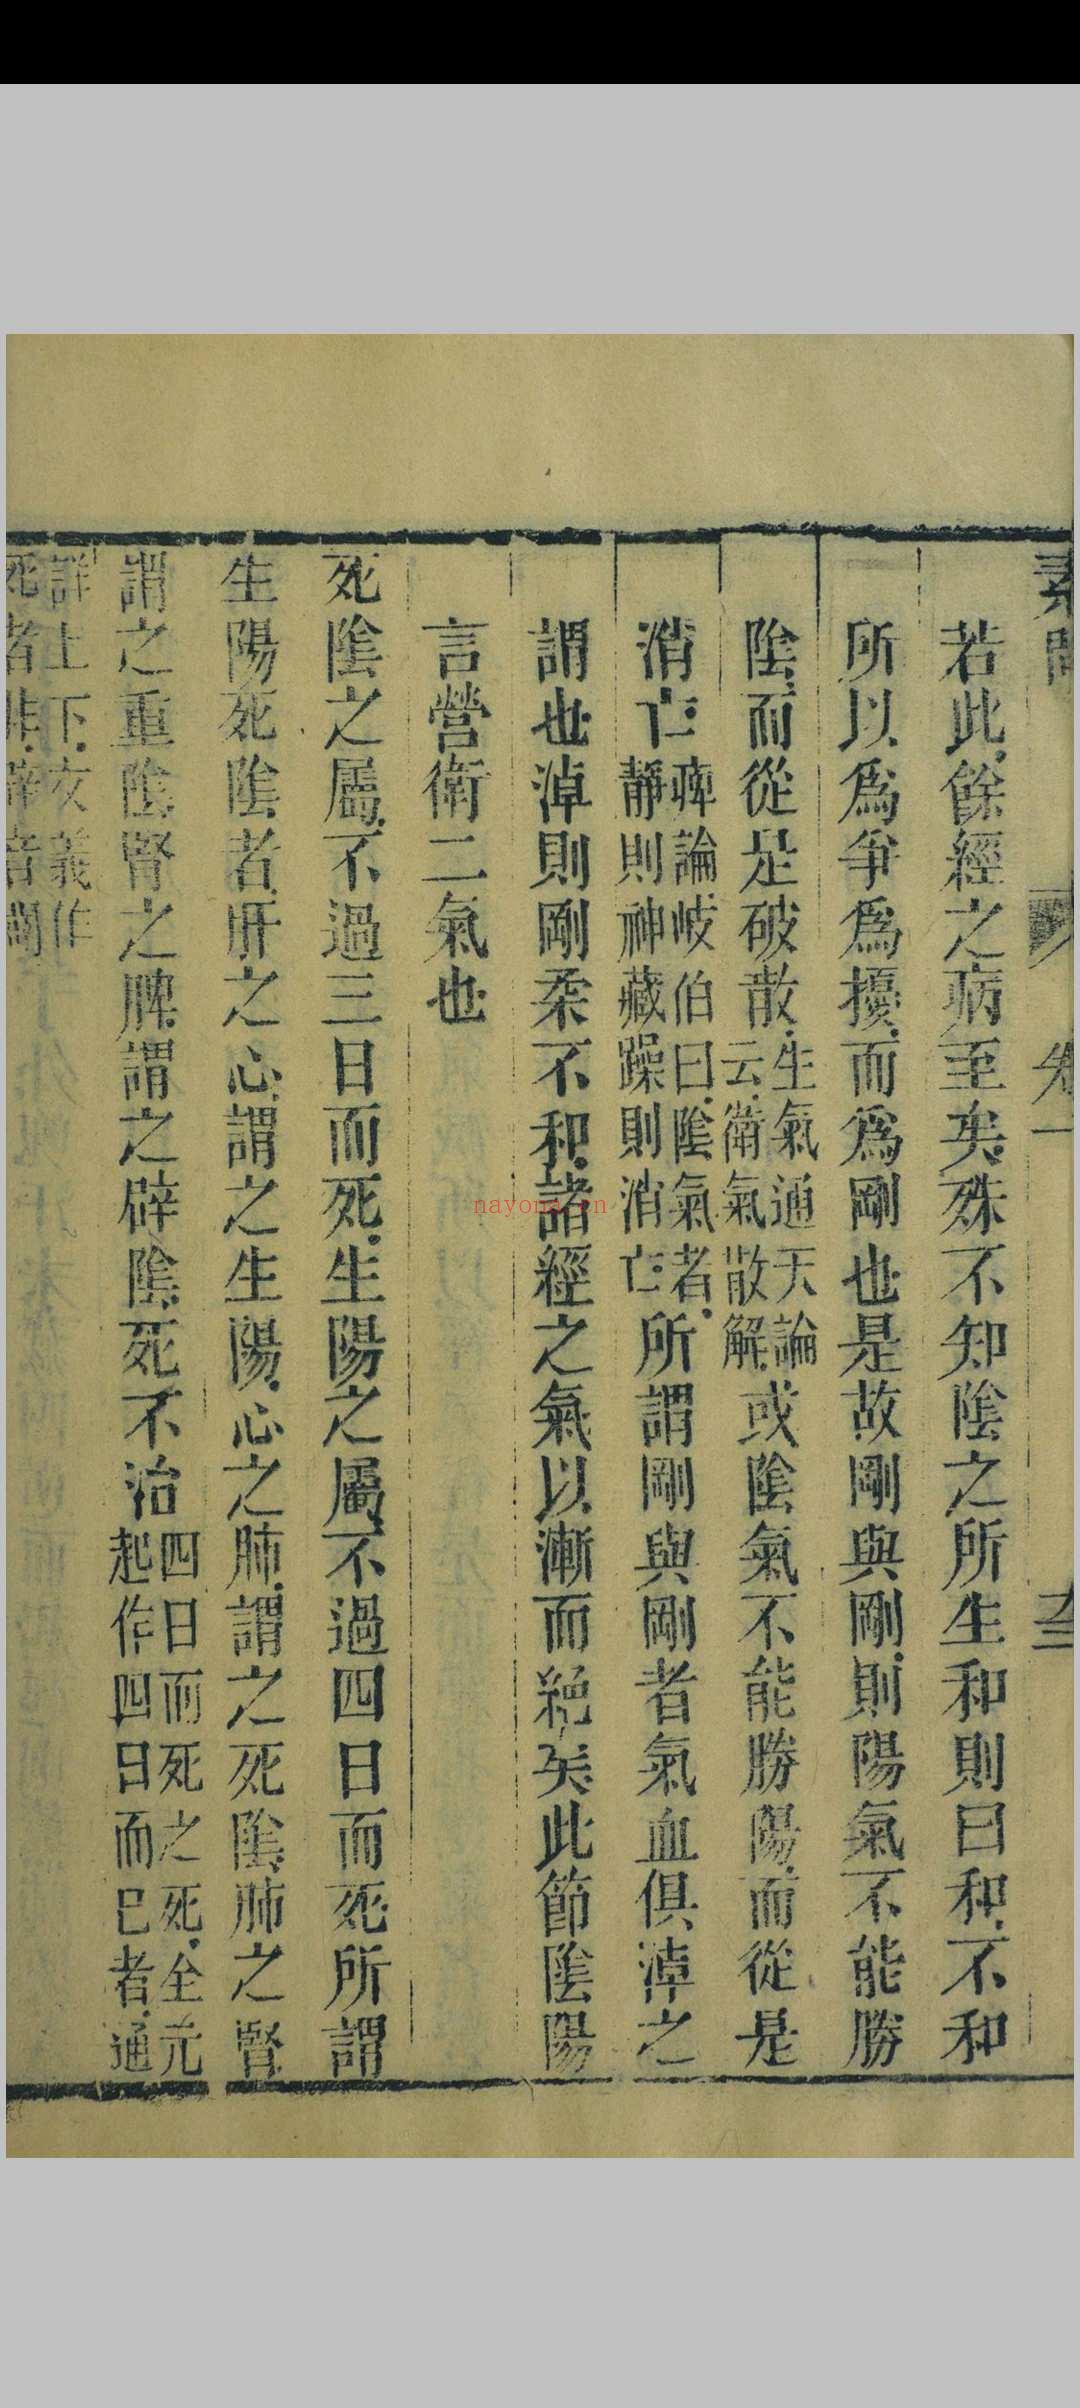 素問
卷一
若此餘經之病至矣殊不知陰之所生和則曰和不和
所以爲爭爲擾而爲剛也是故剛與剛則陽氣不能勝
陰而從是破散生氣通天論云衛氣散解或陰氣不能勝陽而從是
消亡痺論岐伯曰陰氣者靜則神藏躁則消亡所謂剛與剛者氣血俱淖之
謂也淖則剛柔不和諸經之氣以漸而絕矣此節陰陽
言營衛二氣也
死陰之屬不過三日而死生陽之屬不過四日而死所謂
生陽死陰者肝之心謂之生陽心之肺謂之死陰肺之腎
謂之重陰腎之脾謂之辟陰死不治四日而死之死全元起作四日而已者通
詳上下文義作
死者非辟音闢
nayona.cn